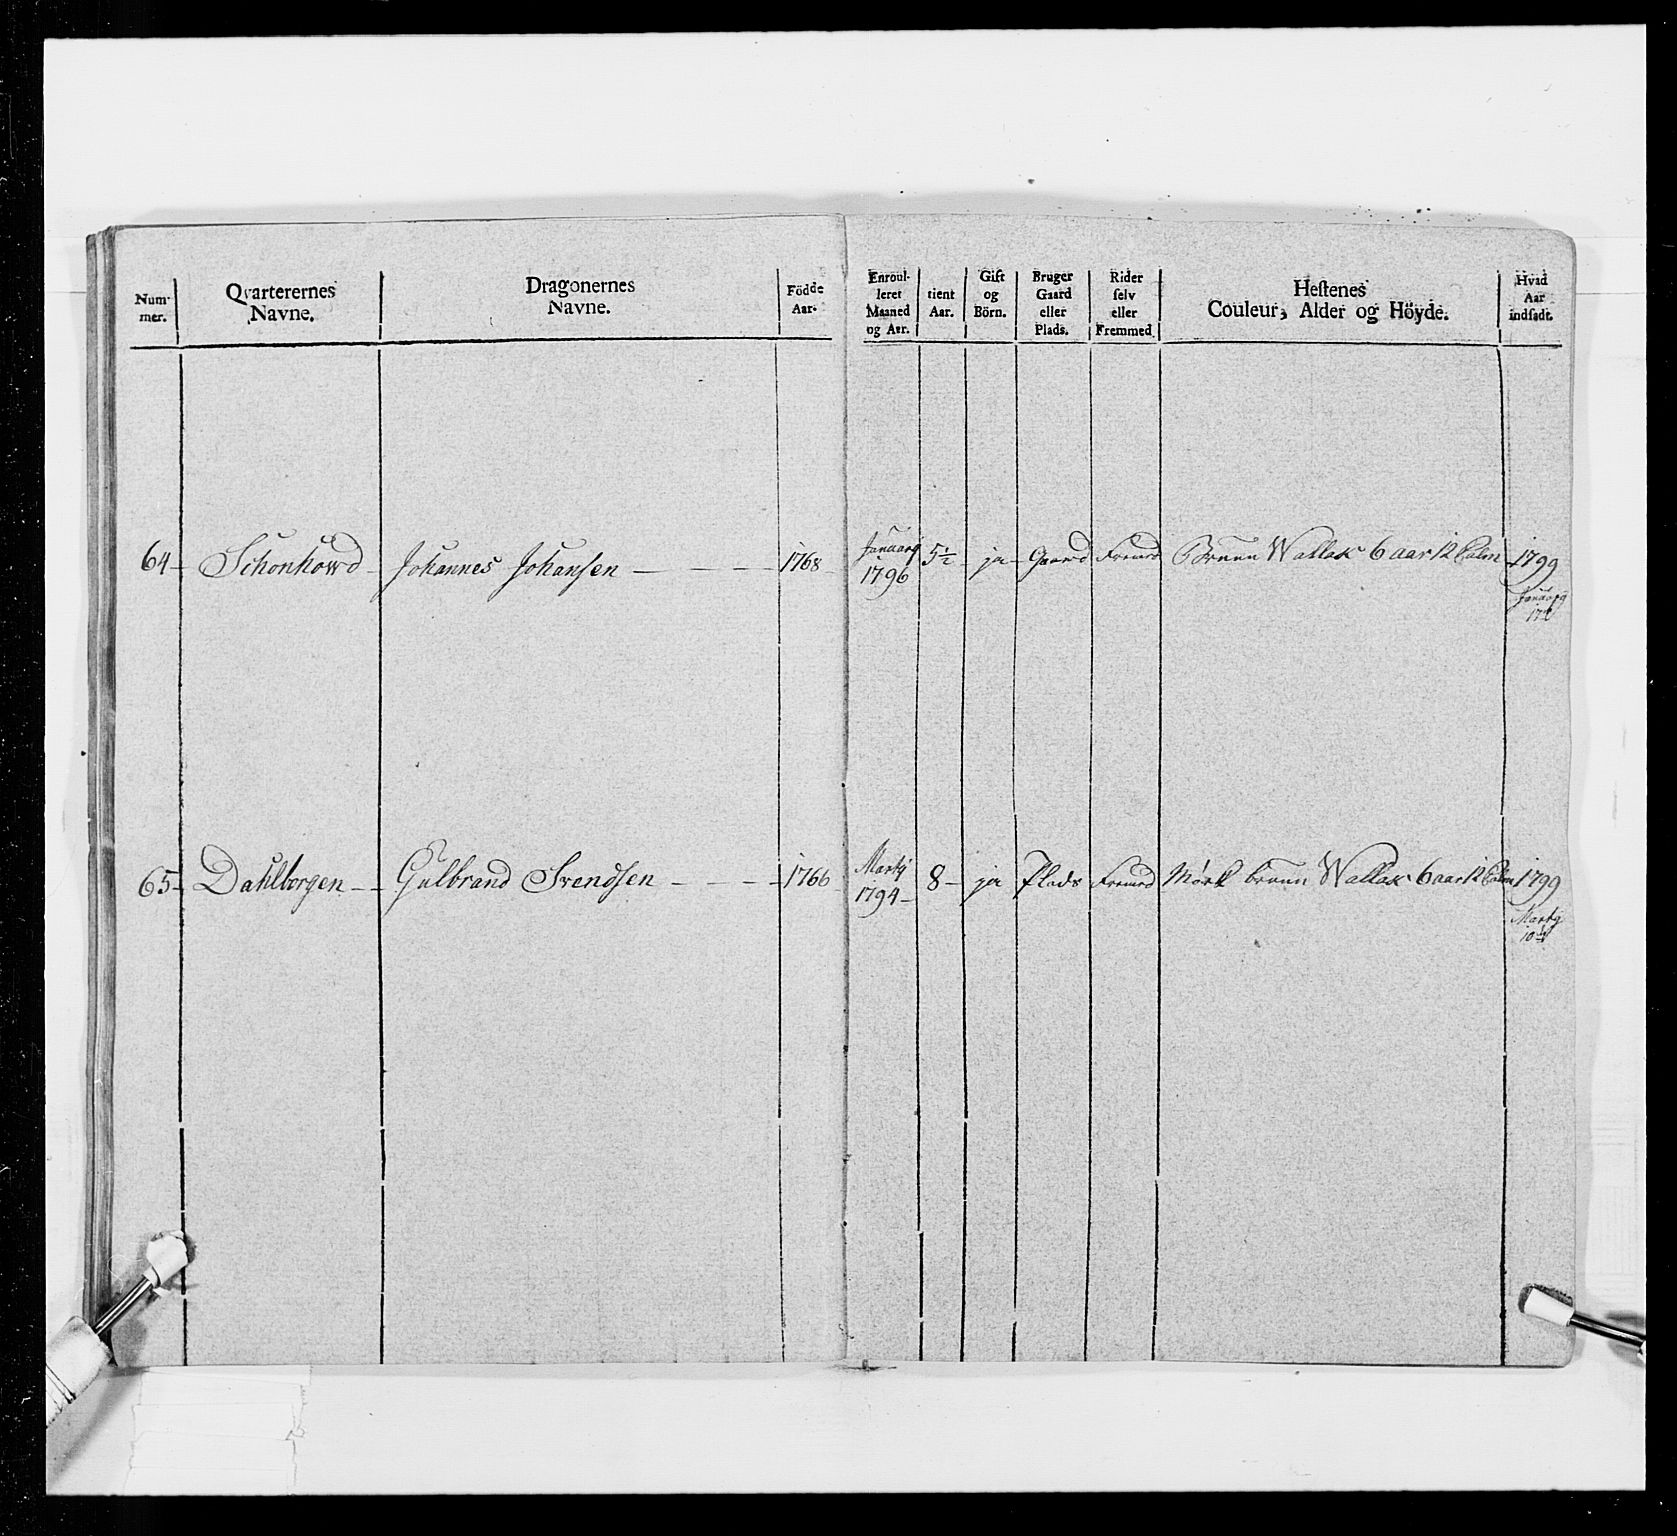 Num-
mer.
Qvarterernes
Navne.
Dragonernes
Navne.
Födde
Aar.
Enroul-
leret
Maaned
og Aar.
tient
Aar.
Gift
og
Börn.
Bruger
Gaard
eller
Plads.
Rider
selv
eller
Fremmed
Hestenes
Couleur, Alder og Höyde.
Hvad
Aar
indsadt.
64 Schonhowd Johannes Johansen 1768 Januarÿ 1796 5½ ja Gaard Fremd Bruun Wallak 6 aar 12 Palm 1799
Januarÿ
65 Dahlborgen Gulbrand Svendsen 1766 Martÿ 1794 8 ja Plads Fremd Mörk bruun Wallak 6 aar 12 Palm 1799
Martÿ